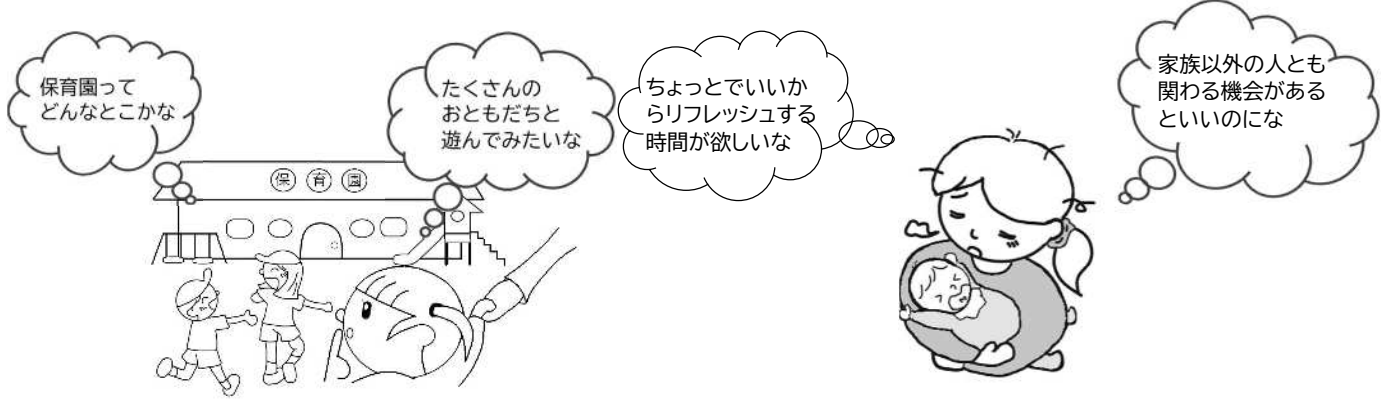 保育園って
どんなとこかな
たくさんの
おともだちと
遊んでみたいな
ちょっとでいいか
らリフレッシュする
時間が欲しいな
家族以外の人とも
関わる機会がある
といいのにな
保育園